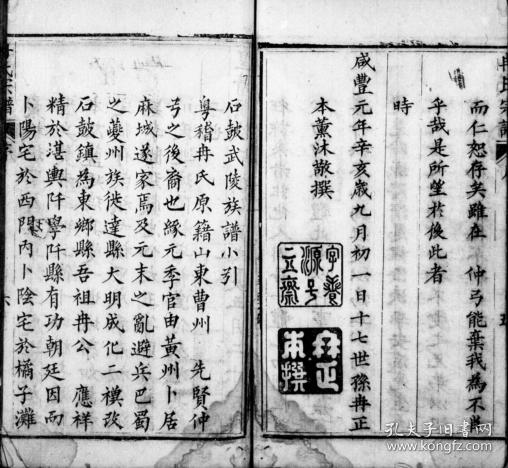 冉氏宗譜
而仁恕存矣雖在　仲弓能棄我為不
乎哉是所望於後此者
時
咸豐元年辛亥歲九月初一日十七世孫冉正
本薰沐敬撰
字養
源号
立齋
冉正
本撰
石鼓武陵族譜小引
粵稽冉氏原籍山東曹州　先賢仲
弓之後裔也緣元季官由黃州卜居
麻城遂家焉及元末之亂避兵巴蜀
之夔州族徙達縣大明成化二模改
石鼓鎮為東鄉縣吾祖冉公　應祥
精於堪輿阡寧阡縣有功朝廷因而
卜陽宅於西門內卜陰宅於橘子灘
宗譜
序
六
孔夫子旧书网
www.kongfz.com